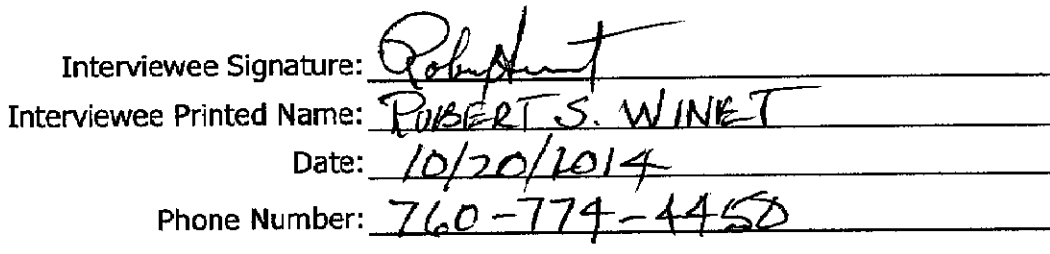 Interviewee Signature:
Interviewee Printed Name: ROBERT S. WINET
Date: 10/20/2014
Phone Number: 760-774-4450